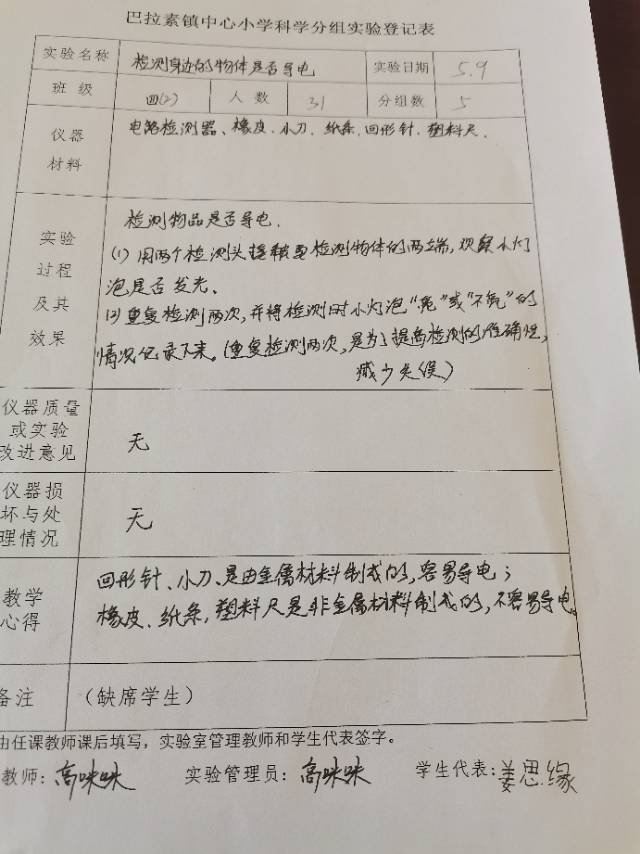 巴拉素镇中心小学科学分组实验登记表
实验名称 检测身边的物体是否导电 实验日期 5.9
班级 四(2) 人数 31 分组数 5
仪器材料 电路检测器、橡皮、小刀、纸条、回形针、塑料尺.
实验过程及其效果
检测物品是否导电.
(1) 用两个检测头接触要检测物体的两端,观察小灯
泡是否发光、
(2) 重复检测两次,并将检测时小灯泡"亮"或"不亮"的
情况记录下来。(重复检测两次,是为了提高检测的准确性,
减少失误)
仪器质量或实验改进意见 无
仪器损坏与处理情况 无
教学心得
回形针、小刀、是由金属材料制成的,容易导电;
橡皮、纸条,塑料尺是非金属材料制成的,不容易导电。
备注 (缺席学生)
由任课教师课后填写,实验室管理教师和学生代表签字。
教师:高咪咪 实验管理员:高咪咪 学生代表:姜思缘